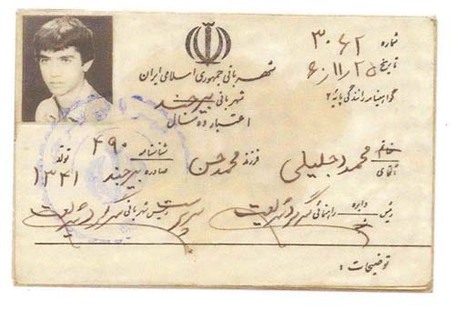 شماره ۳۰۶۲
تاریخ ۶۰/۱۱/۲۵
گواهینامه رانندگی پایه ۲
شهربانی جمهوری اسلامی ایران
شهربانی بیرجند
اعتبار ده سال
خانم آقای محمود جلیلی فرزند محمد حسن شناسنامه ۴۹۰ صادره بیرجند تولد ۱۳۴۱
رئیس دایره راهنمائی رئیس شهربانی
توضیحات :